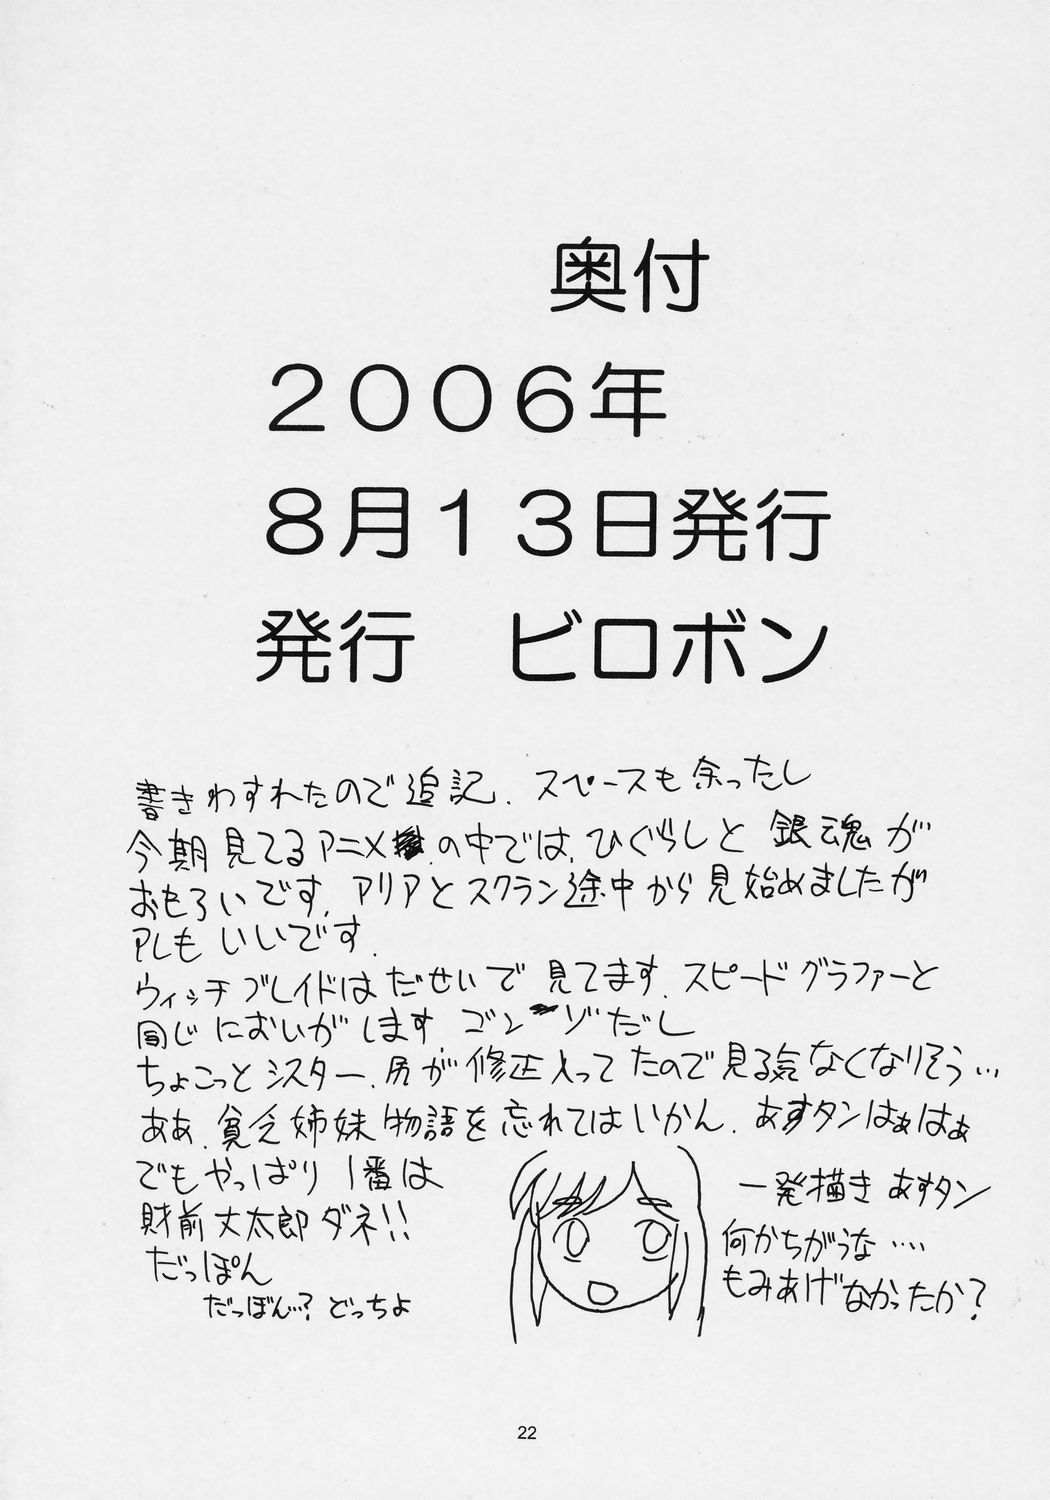 奥付
２００６年
８月１３日発行
発行　ビロボン
書きわすれたので追記、スペースも余ったし
今期見てるアニメの中では、ひぐらしと銀魂が
おもろいです。アリアとスクラン途中から見始めましたが
アレもいいです。
ウィッチブレイドはだせいで見てます。スピードグラファーと
同じにおいがします。ゴンゾだし
ちょこっとシスター、尻が修正入ってたので見る気なくなりそう…
ああ、貧乏姉妹物語を忘れてはいかん、あすタンはぁはぁ
でもやっぱり1番は
財前丈太郎ダネ!!
だっぽん
だっぼん…？どっちよ
一発描きあすタン
何かちがうな‥‥
もみあげなかったか？
22